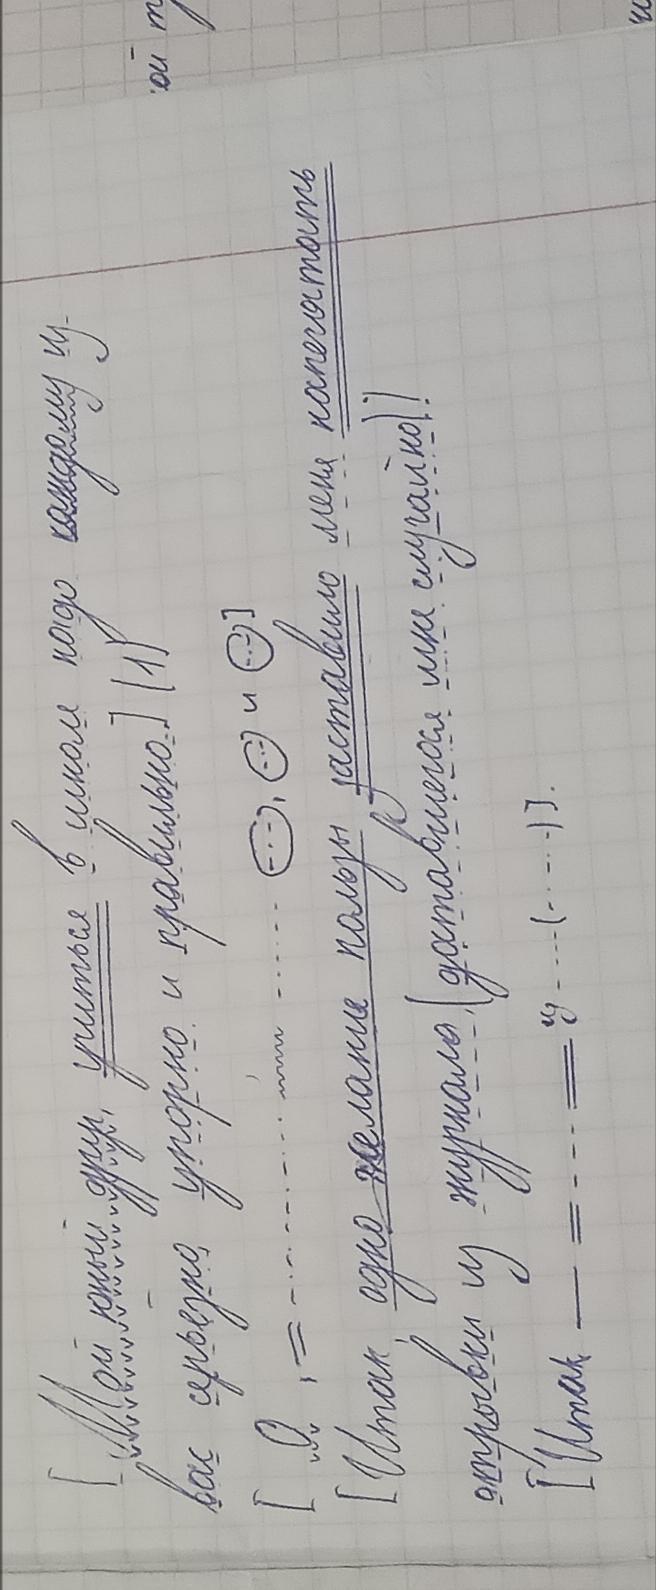 [Мой юный друг, учиться в школе надо каждому из
вас серьезно, упорно и правильно.] (1)
[О, и ]
[Итак, одно желание пользы заставило меня напечатать
отрывки из журнала, (доставшегося мне случайно)].
[Итак, из ( )].
ой